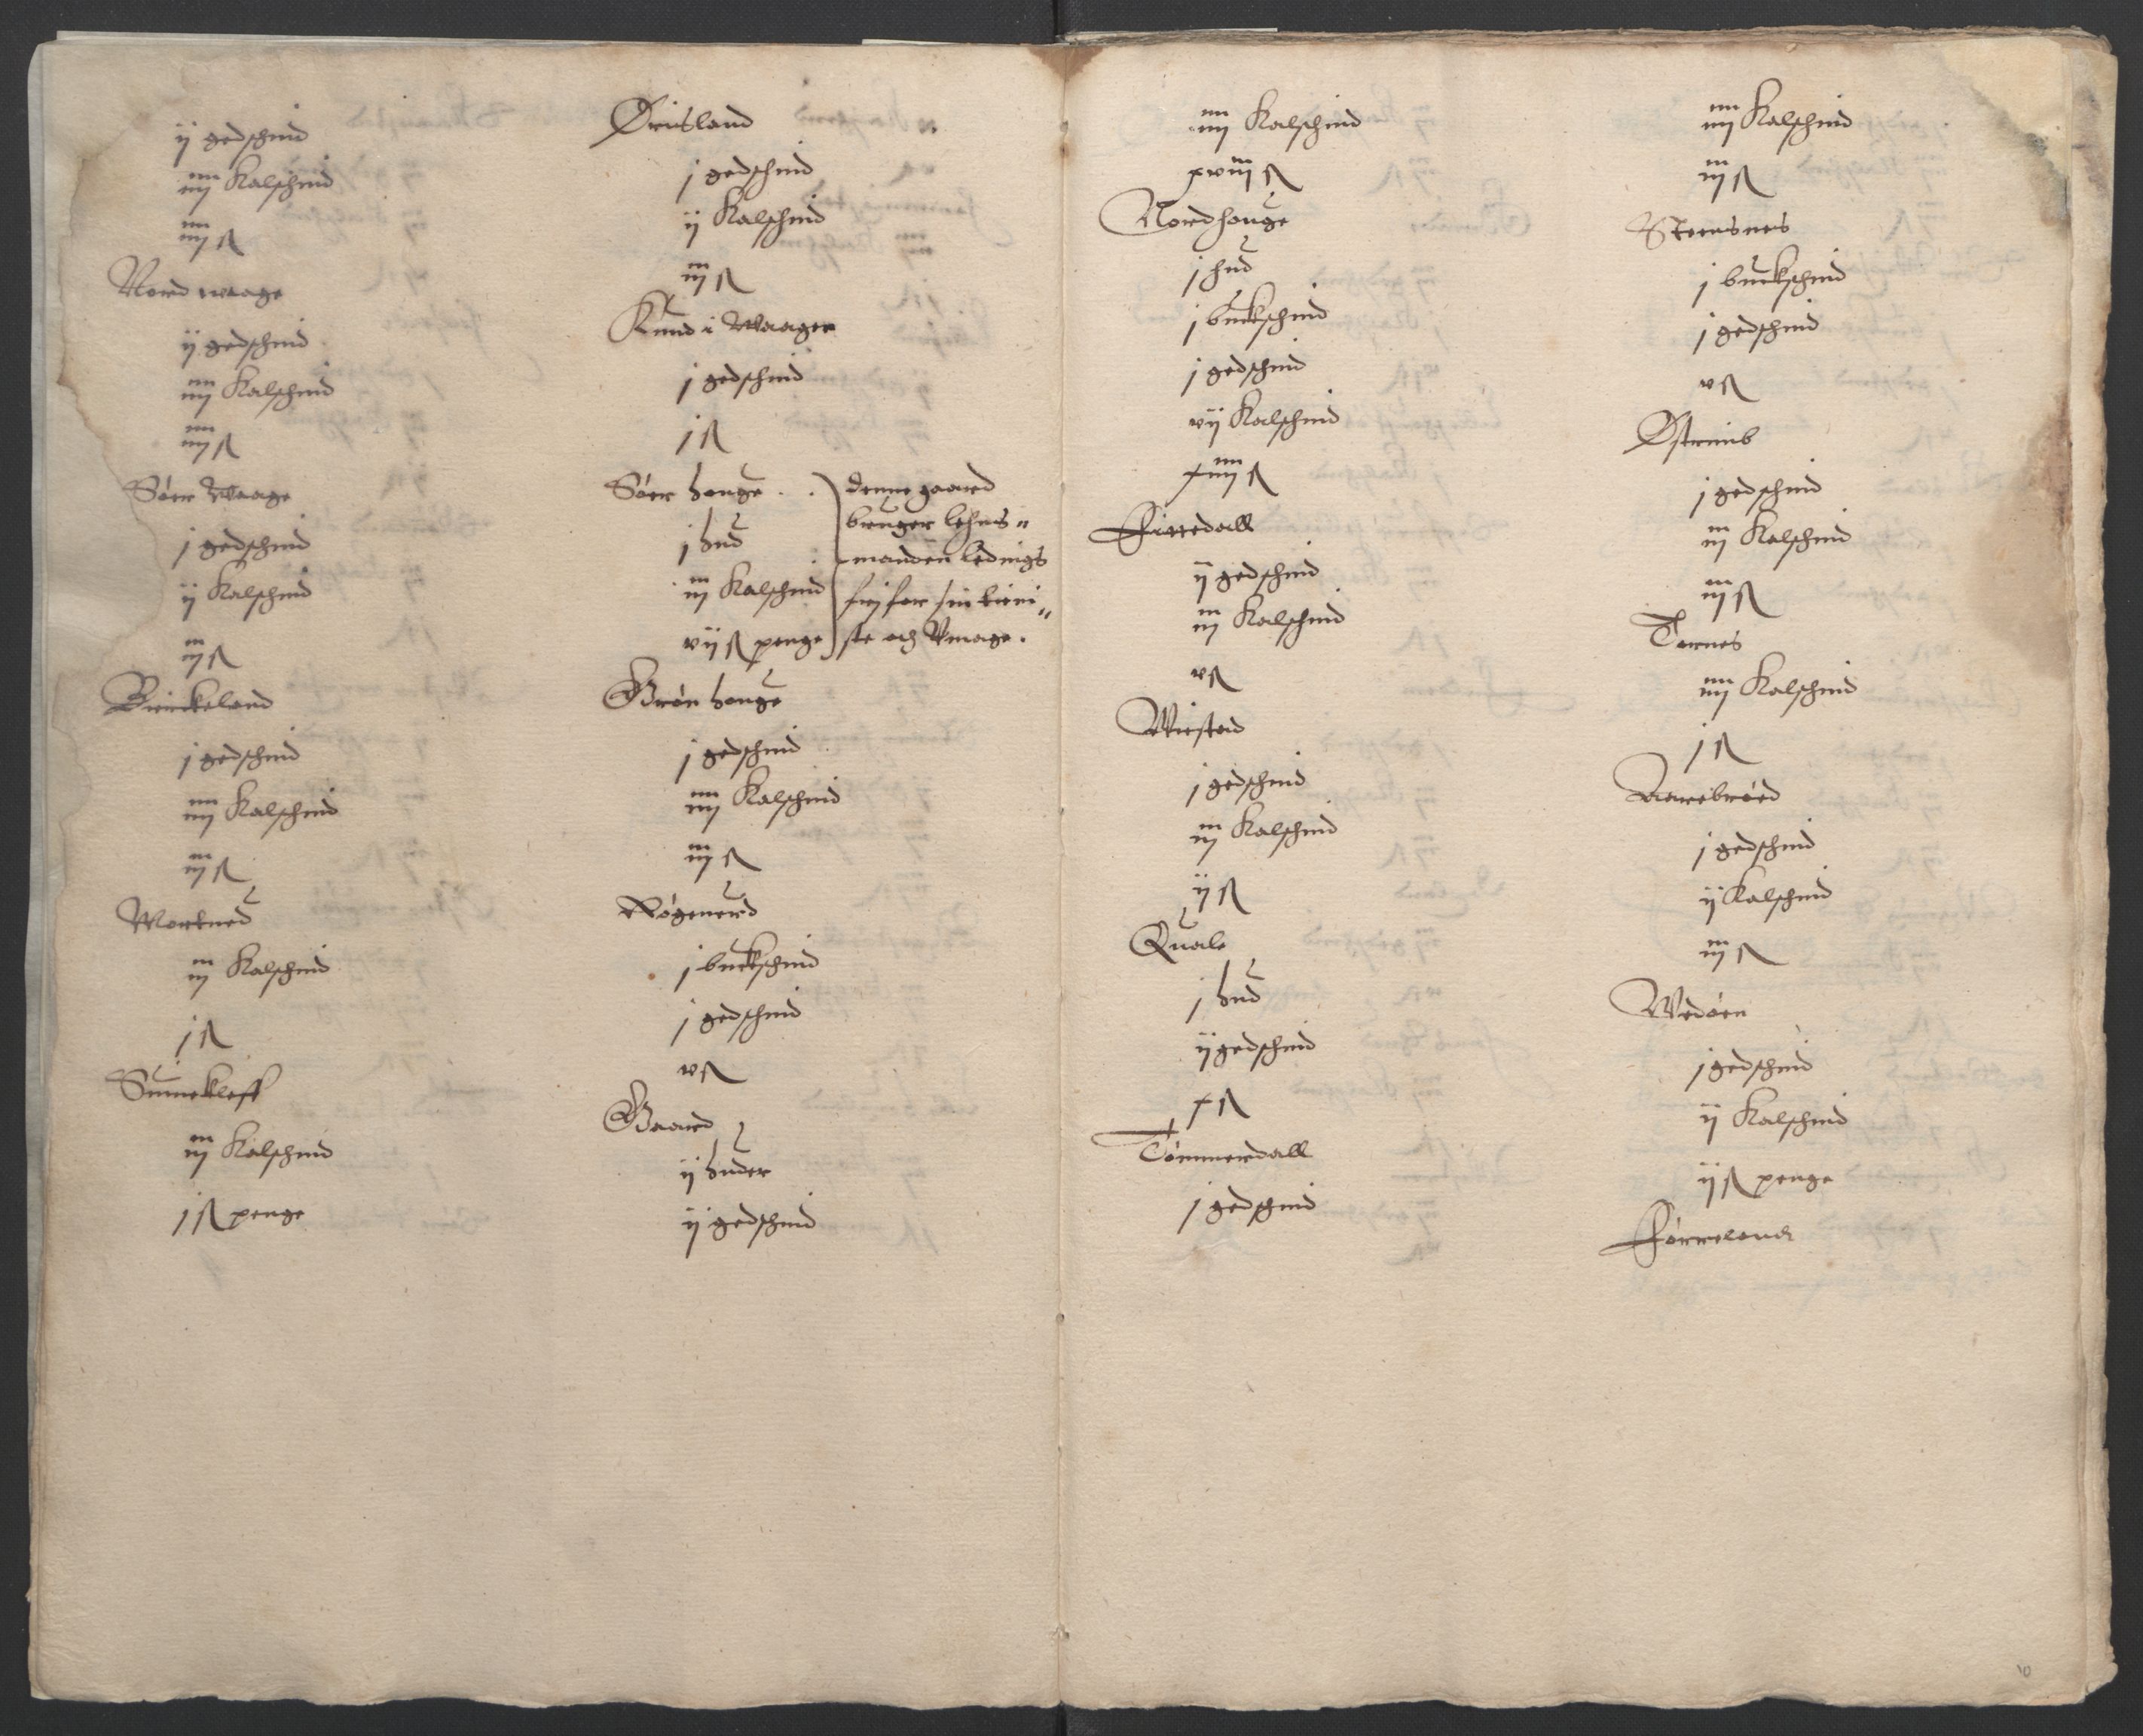 ij gedschind
iiij Kalschind
iiij ß
Nord waage
ij gedschind
iiij Kalschind
iiij ß
Sør Waage
j gedschind
ij Kalschind
iij ß
Birckeland
j gedschind
iiij Kalschind
iij ß
Morkued
iij Kalschind
j ß
Sunnekleff
iij Kalschind
j ß penge
Øriisland
j gedschind
ij Kalschind
iij ß
Knud i Waagen
j gedschind
j ß
Søer houge
j hud
iij Kalschind
vij ß penge
denne gaard
bruger lehns"
manden ledings
frij for sin tieni"
ste och Vmage.
Grøn houge
j gedschind
iiij Kalschind
iij ß
Røgenerd
j buckschind
j gedschind
v ß
Gaard
ij huder
ij gedschind
iiij Kalschind
xviij ß
Nordhouge
j hud
j buckschind
j gedschind
vij Kalschind
xiiij ß
Fittedall
ij gedschind
iij Kalschind
v ß
Wiestad
j gedschind
iij Kalschind
ij ß
Quale
j hud
ij gedschind
x ß
Tømmerdall
j gedschind
iiij Kalschind
iij ß
Steensnes
j buckschind
j gedschind
v ß
Østreimb
j gedschind
iij Kalschind
iij ß
Tornes
iiij Kalschind
j ß
Aarebrøed
j gedschind
ij Kalschind
iij ß
Wedøen
j gedschind
ij Kalschind
ij ß penge
Førreland
10